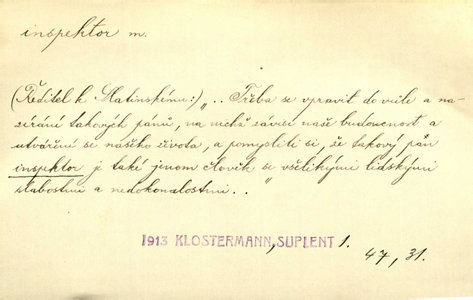 inspektor m.
(Ředitel k Slatinskému:) „.. Třeba se vpravit do vůle a na-
zírání takových pánů, na nichž závisí naše budoucnost a
utváření se našeho života, a pomysleti si, že takový pan
inspektor je také jenom člověk se všelikými lidskými
slabostmi a nedokonalostmi.."
1913 KLOSTERMANN, SUPLENT 1.
47, 31.